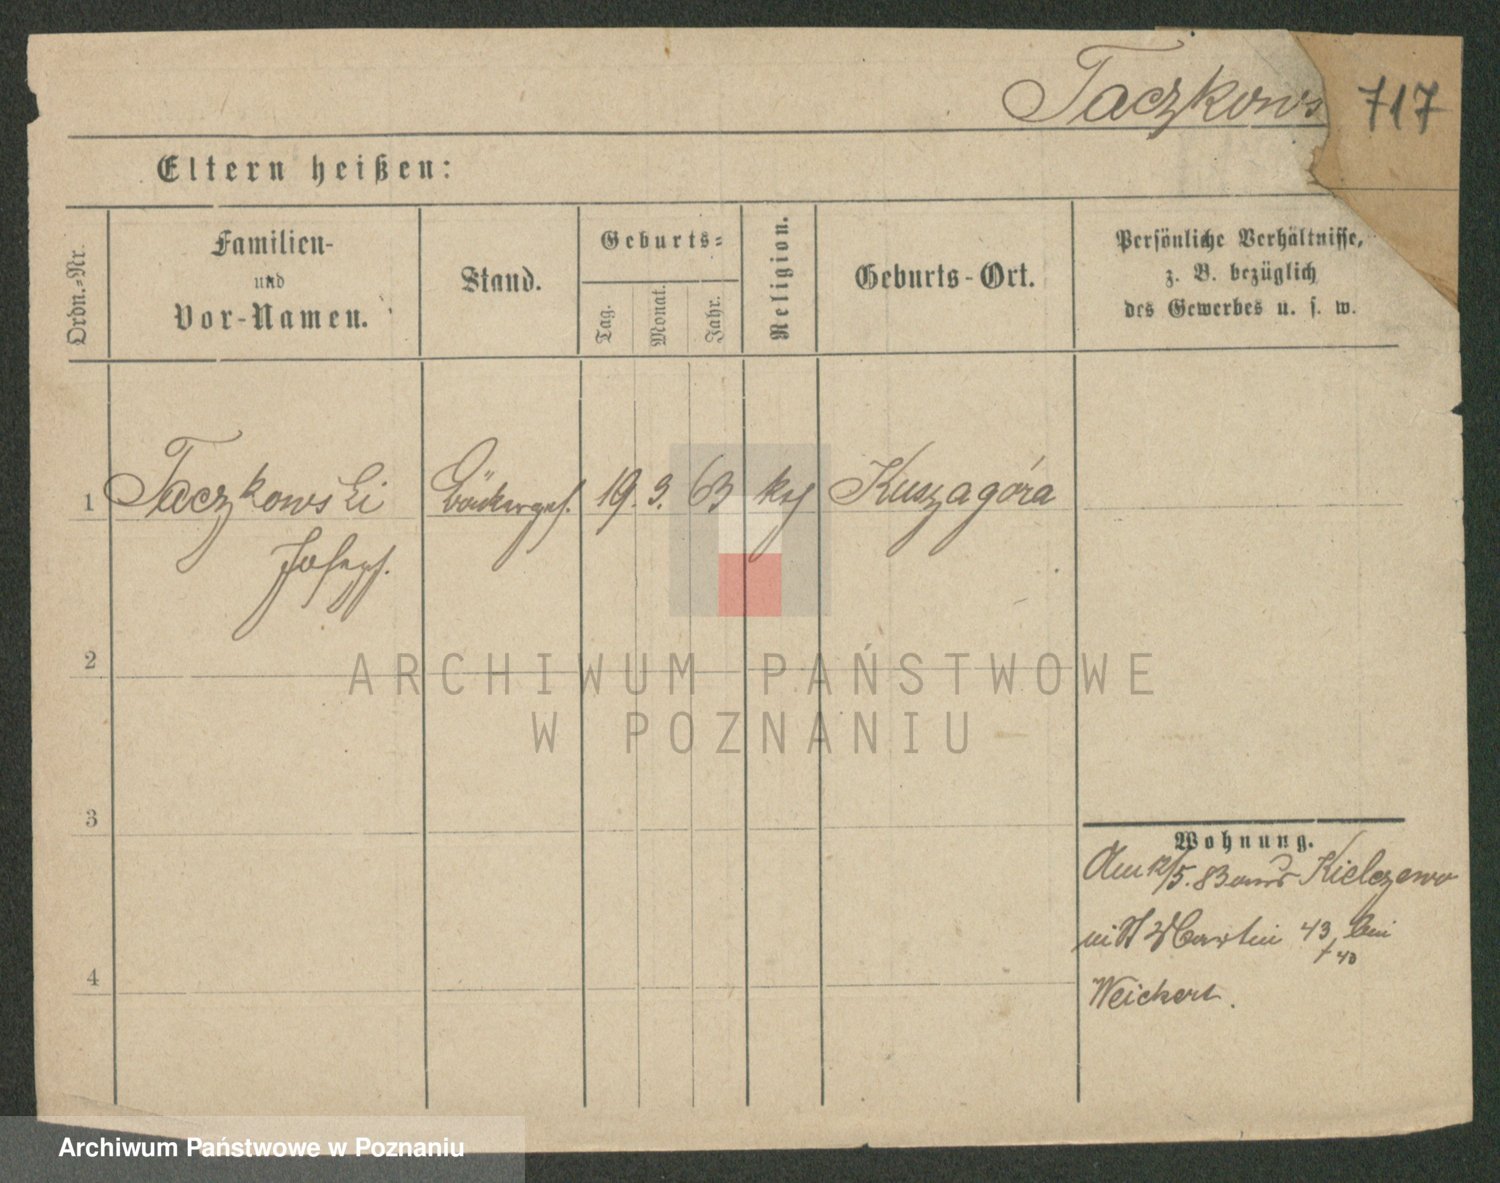 Taczkows
717
Eltern heißen:
Ordn.-Nr.
Familien-
und
Vor-Namen.
Stand.
Geburts-
Tag.
Monat.
Jahr.
Religion.
Geburts-Ort.
Persönliche Verhältnisse,
z. B. bezüglich
des Gewerbes u. s. w.
1 Taczkowski Bäckerges. 19. 3. 63 kg Kuszagóra
Joseph.
2
ARCHIWUM PAŃSTWOWE
W POZNANIU
3
Wohnung.
Am 12/5. 83 aus Kielczewo
St Martin 43 bei
/40
Weichert.
4
Archiwum Państwowe w Poznaniu